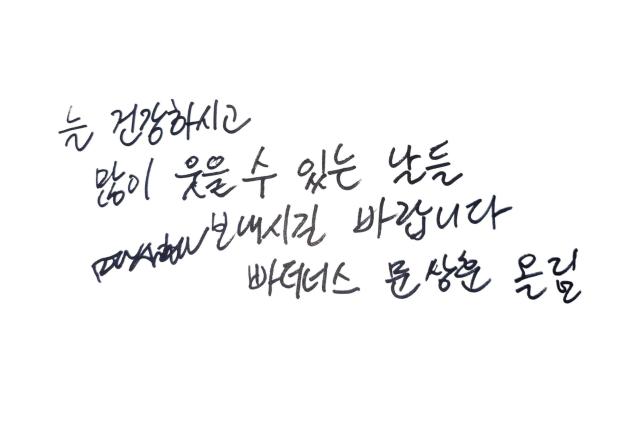 늘 건강하시고
많이 웃을 수 있는 날들
보내시길 바랍니다
빠더너스 문상훈 올림